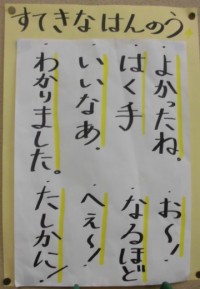 すてきなはんのう
・よかったね。
・はく手
・いいなあ。
・わかりました。
・お〜！
・なるほど
・へぇ〜！
・たしかに！